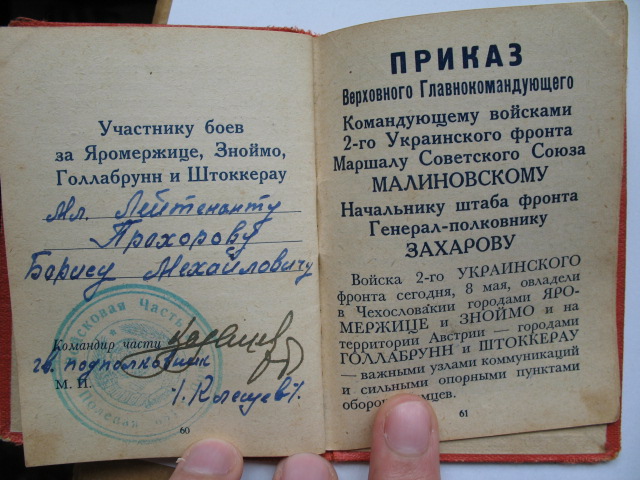 Участнику боев
за Яромержице, Зноймо,
Голлабрунн и Штоккерау
Мл. Лейтенанту
Прохорову
Борису Михайловичу
Войсковая Часть
Командир части
гв. подполковник
М. П.
/. Клещев /.
Полевая
60
ПРИКАЗ
Верховного Главнокомандующего
Командующему войсками
2-го Украинского фронта
Маршалу Советского Союза
МАЛИНОВСКОМУ
Начальнику штаба фронта
Генерал-полковнику
ЗАХАРОВУ
Войска 2-го УКРАИНСКОГО
фронта сегодня, 8 мая, овладели
в Чехословакии городами ЯРО-
МЕРЖИЦЕ и ЗНОЙМО и на
территории Австрии — городами
ГОЛЛАБРУНН и ШТОККЕРАУ
— важными узлами коммуникаций
и сильными опорными пунктами
оборо мцев.
61